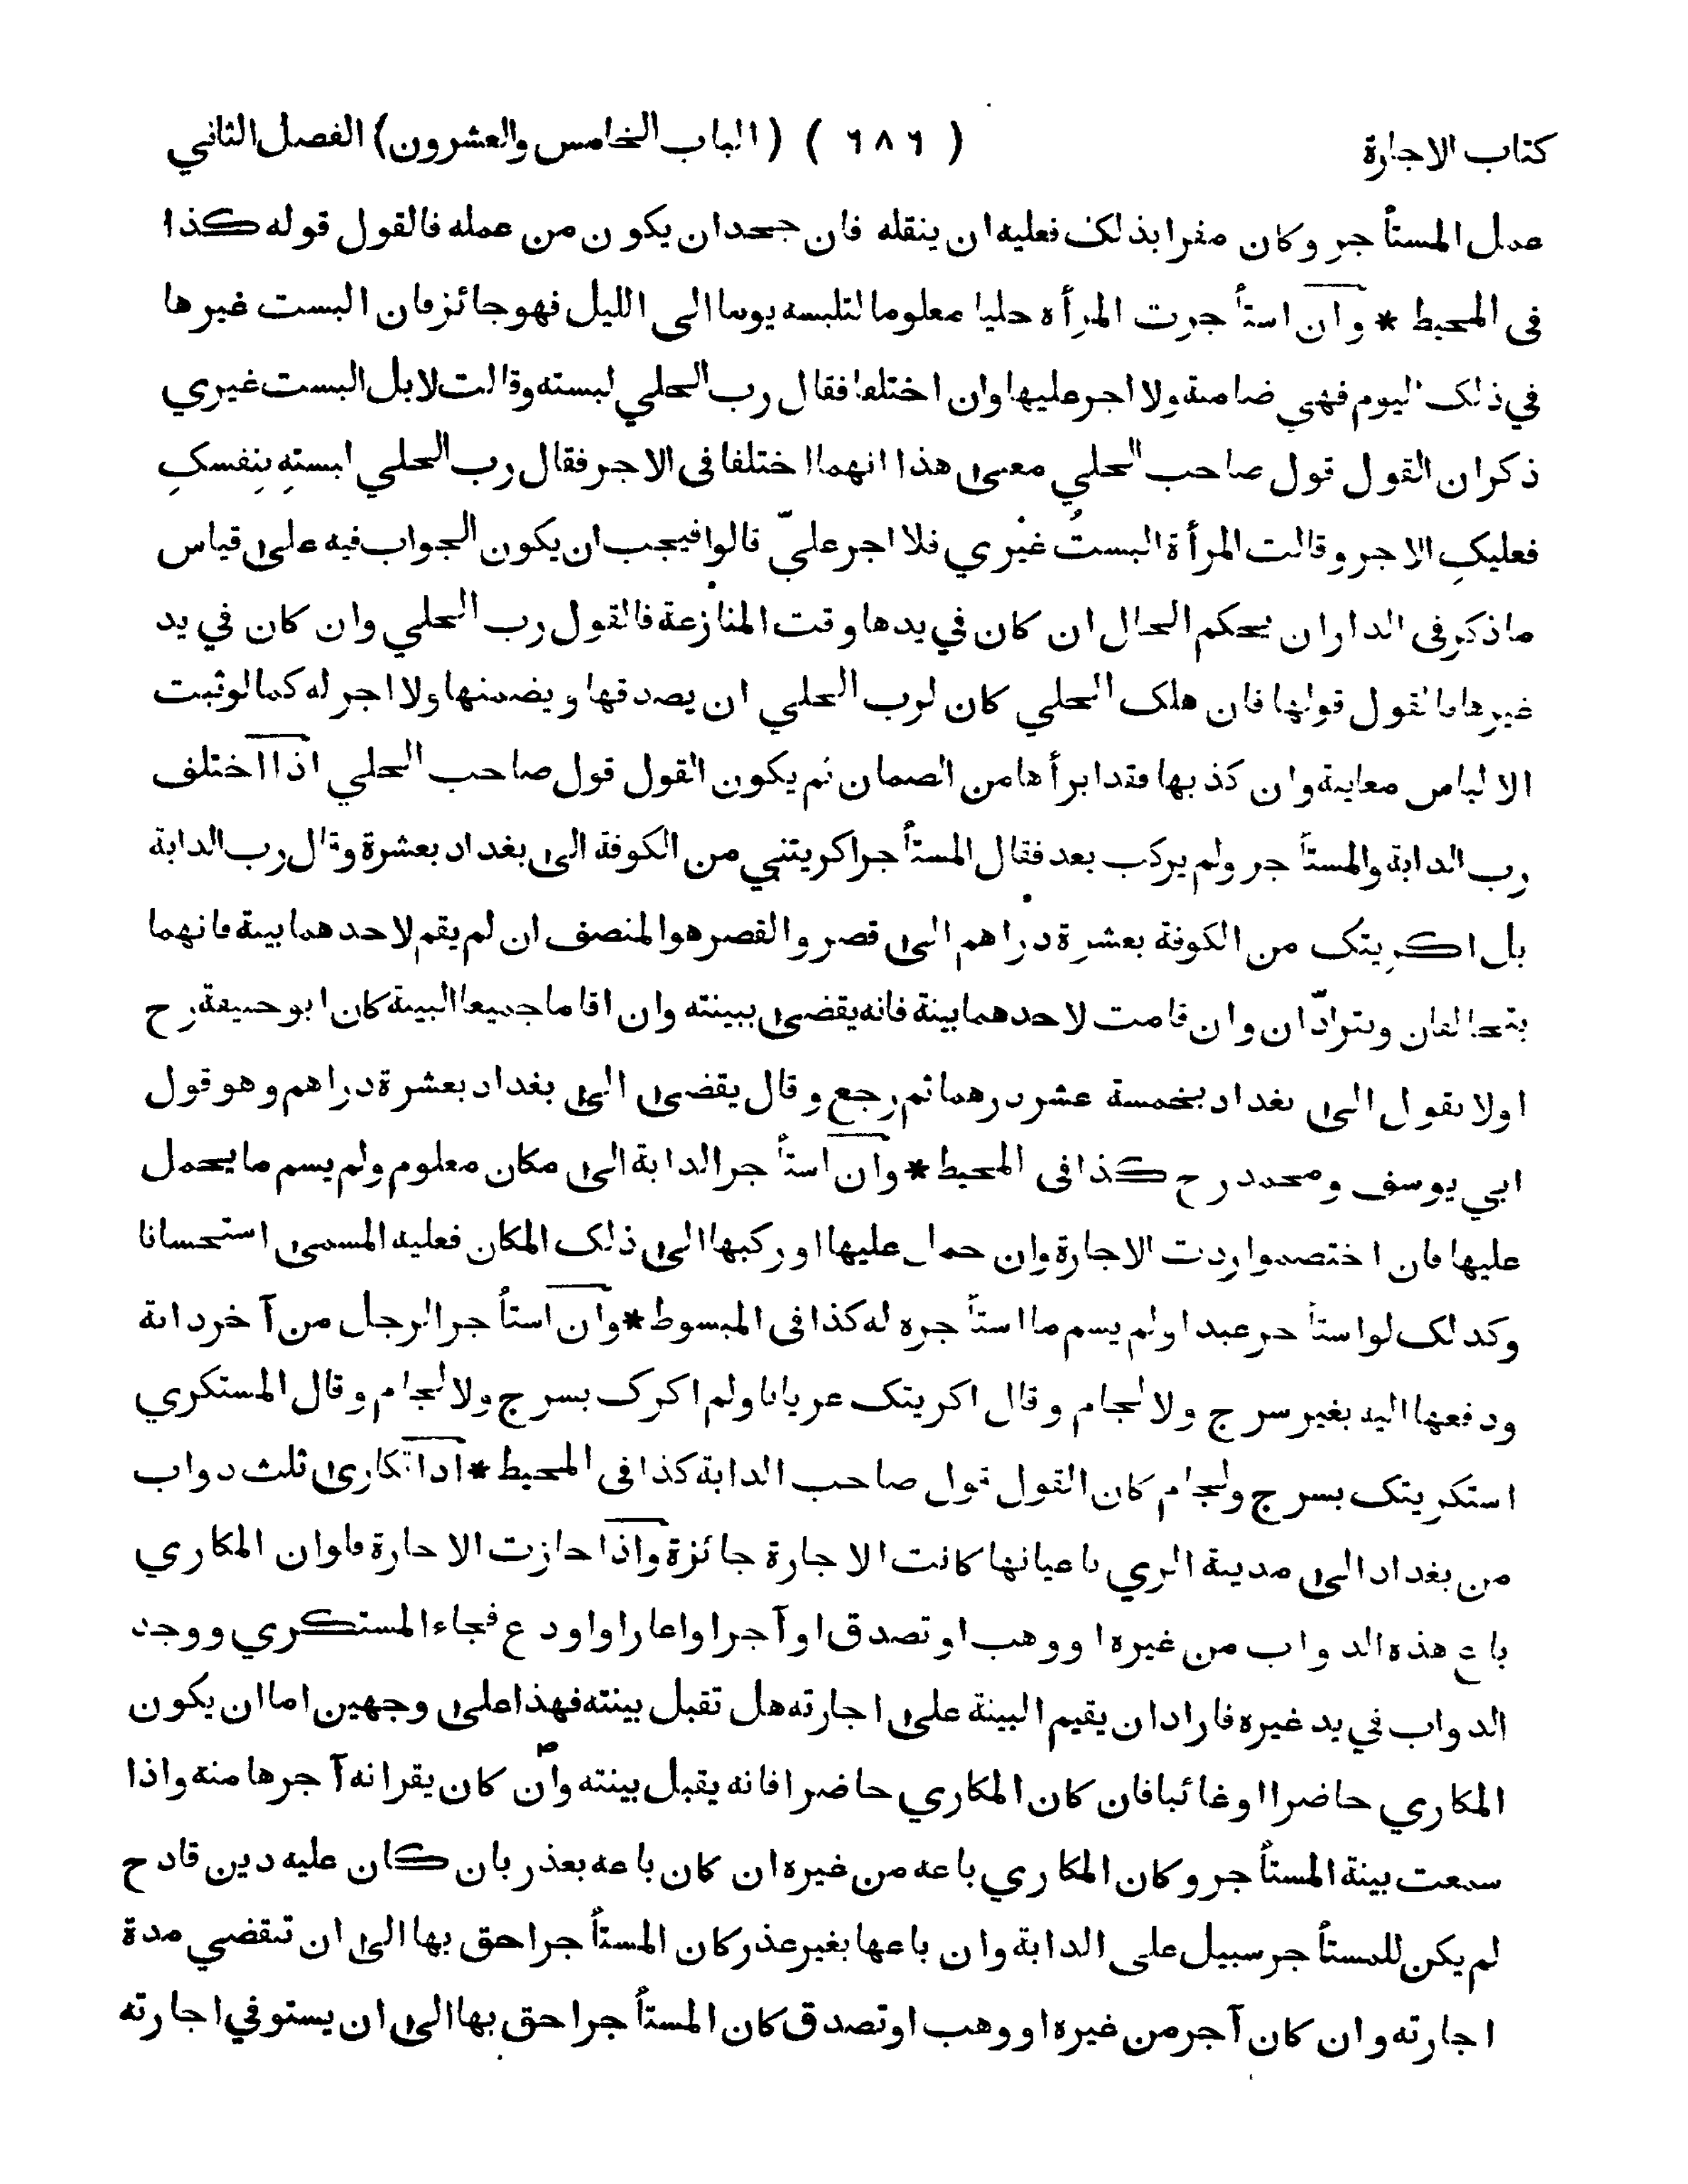 كتاب الاجارة ( ٦٨٦ ) ( الباب الخامس والعشرون) الفصل الثاني
عمل المستأجر وكان مقرا بذلك فعليه ان ينقله فان جحد ان يكون من عمله فالقول قوله كذا
فى المحيط * وان استأجرت المرأة حليا معلوما لتلبسه يوما الى الليل فهو جائز فان البست غيرها
في ذلك اليوم فهي ضامنة ولا اجر عليها وان اختلفا فقال رب الحلي لبسته وقالت لا بل البست غيري
ذكر ان القول قول صاحب الحلي معنى هذا انهما اختلفا فى الاجر فقال رب الحلي لبستِهِ بنِفسكِ
فعليكِ الاجر وقالت المرأة البستُ غيري فلا اجر عليّ قالوا فيجب ان يكون الجواب فيه على قياس
ما ذكر فى الدار ان يحكم الحال ان كان في يدها وقت المنازعة فالقول رب الحلي وان كان في يد
غيرها فالقول قولها فان هلك الحلي كان لرب الحلي ان يصدقها ويضمنها ولا اجر له كما لو ثبت
الالباس معاينة وان كذبها فقد ابرأها من الضمان ثم يكون القول قول صاحب الحلي اذا اختلف
رب الدابة والمستأجر ولم يركب بعد فقال المستأجر اكريتني من الكوفة الى بغداد بعشرة وقال رب الدابة
بل اكريتك من الكوفة بعشرة دراهم الى قصر والقصر هو المنصف ان لم يقم لاحدهما بينة فانهما
يتحالفان ويترادّان وان قامت لاحدهما بينة فانه يقضى ببينته وان اقاما جميعا البينة كان ابو حنيفة رح
اولا يقول الى بغداد بخمسة عشر درهما ثم رجع وقال يقضى الى بغداد بعشرة دراهم وهو قول
ابي يوسف ومحمد رح كذا فى المحيط * وان استأجر الدابة الى مكان معلوم ولم يسم ما يحمل
عليها فان اختصموا ردت الاجارة وان حمل عليها او ركبها الى ذلك المكان فعليه المسمى استحسانا
وكذلك لو استأجر عبدا ولم يسم ما استأجره له كذا فى المبسوط * وان استأجر الرجل من آخر دابة
ودفعها اليه بغير سرج ولا لجام وقال اكريتك عريانا ولم اكرك بسرج ولا لجام وقال المستكري
استكريتك بسرج ولجام كان القول قول صاحب الدابة كذا فى المحيط * اذا تكارى ثلث دواب
من بغداد الى مدينة الري باعيانها كانت الاجارة جائزة واذا جازت الاجارة فلو ان المكاري
باع هذه الدواب من غيره او وهب او تصدق او آجر او اعار او اودع فجاء المستكري ووجد
الدواب في يد غيره فاراد ان يقيم البينة على اجارته هل تقبل بينته فهذا على وجهين اما ان يكون
المكاري حاضرا او غائبا فان كان المكاري حاضرا فانه يقبل بينته وان كان يقر انه آجرها منه واذا
سمعت بينة المستأجر وكان المكاري باعه من غيره ان كان باعه بعذر بان كان عليه دين قادح
لم يكن للمستأجر سبيل على الدابة وان باعها بغير عذر كان المستأجر احق بها الى ان تنقضي مدة
اجارته وان كان آجر من غيره او وهب او تصدق كان المستأجر احق بها الى ان يستوفي اجارته